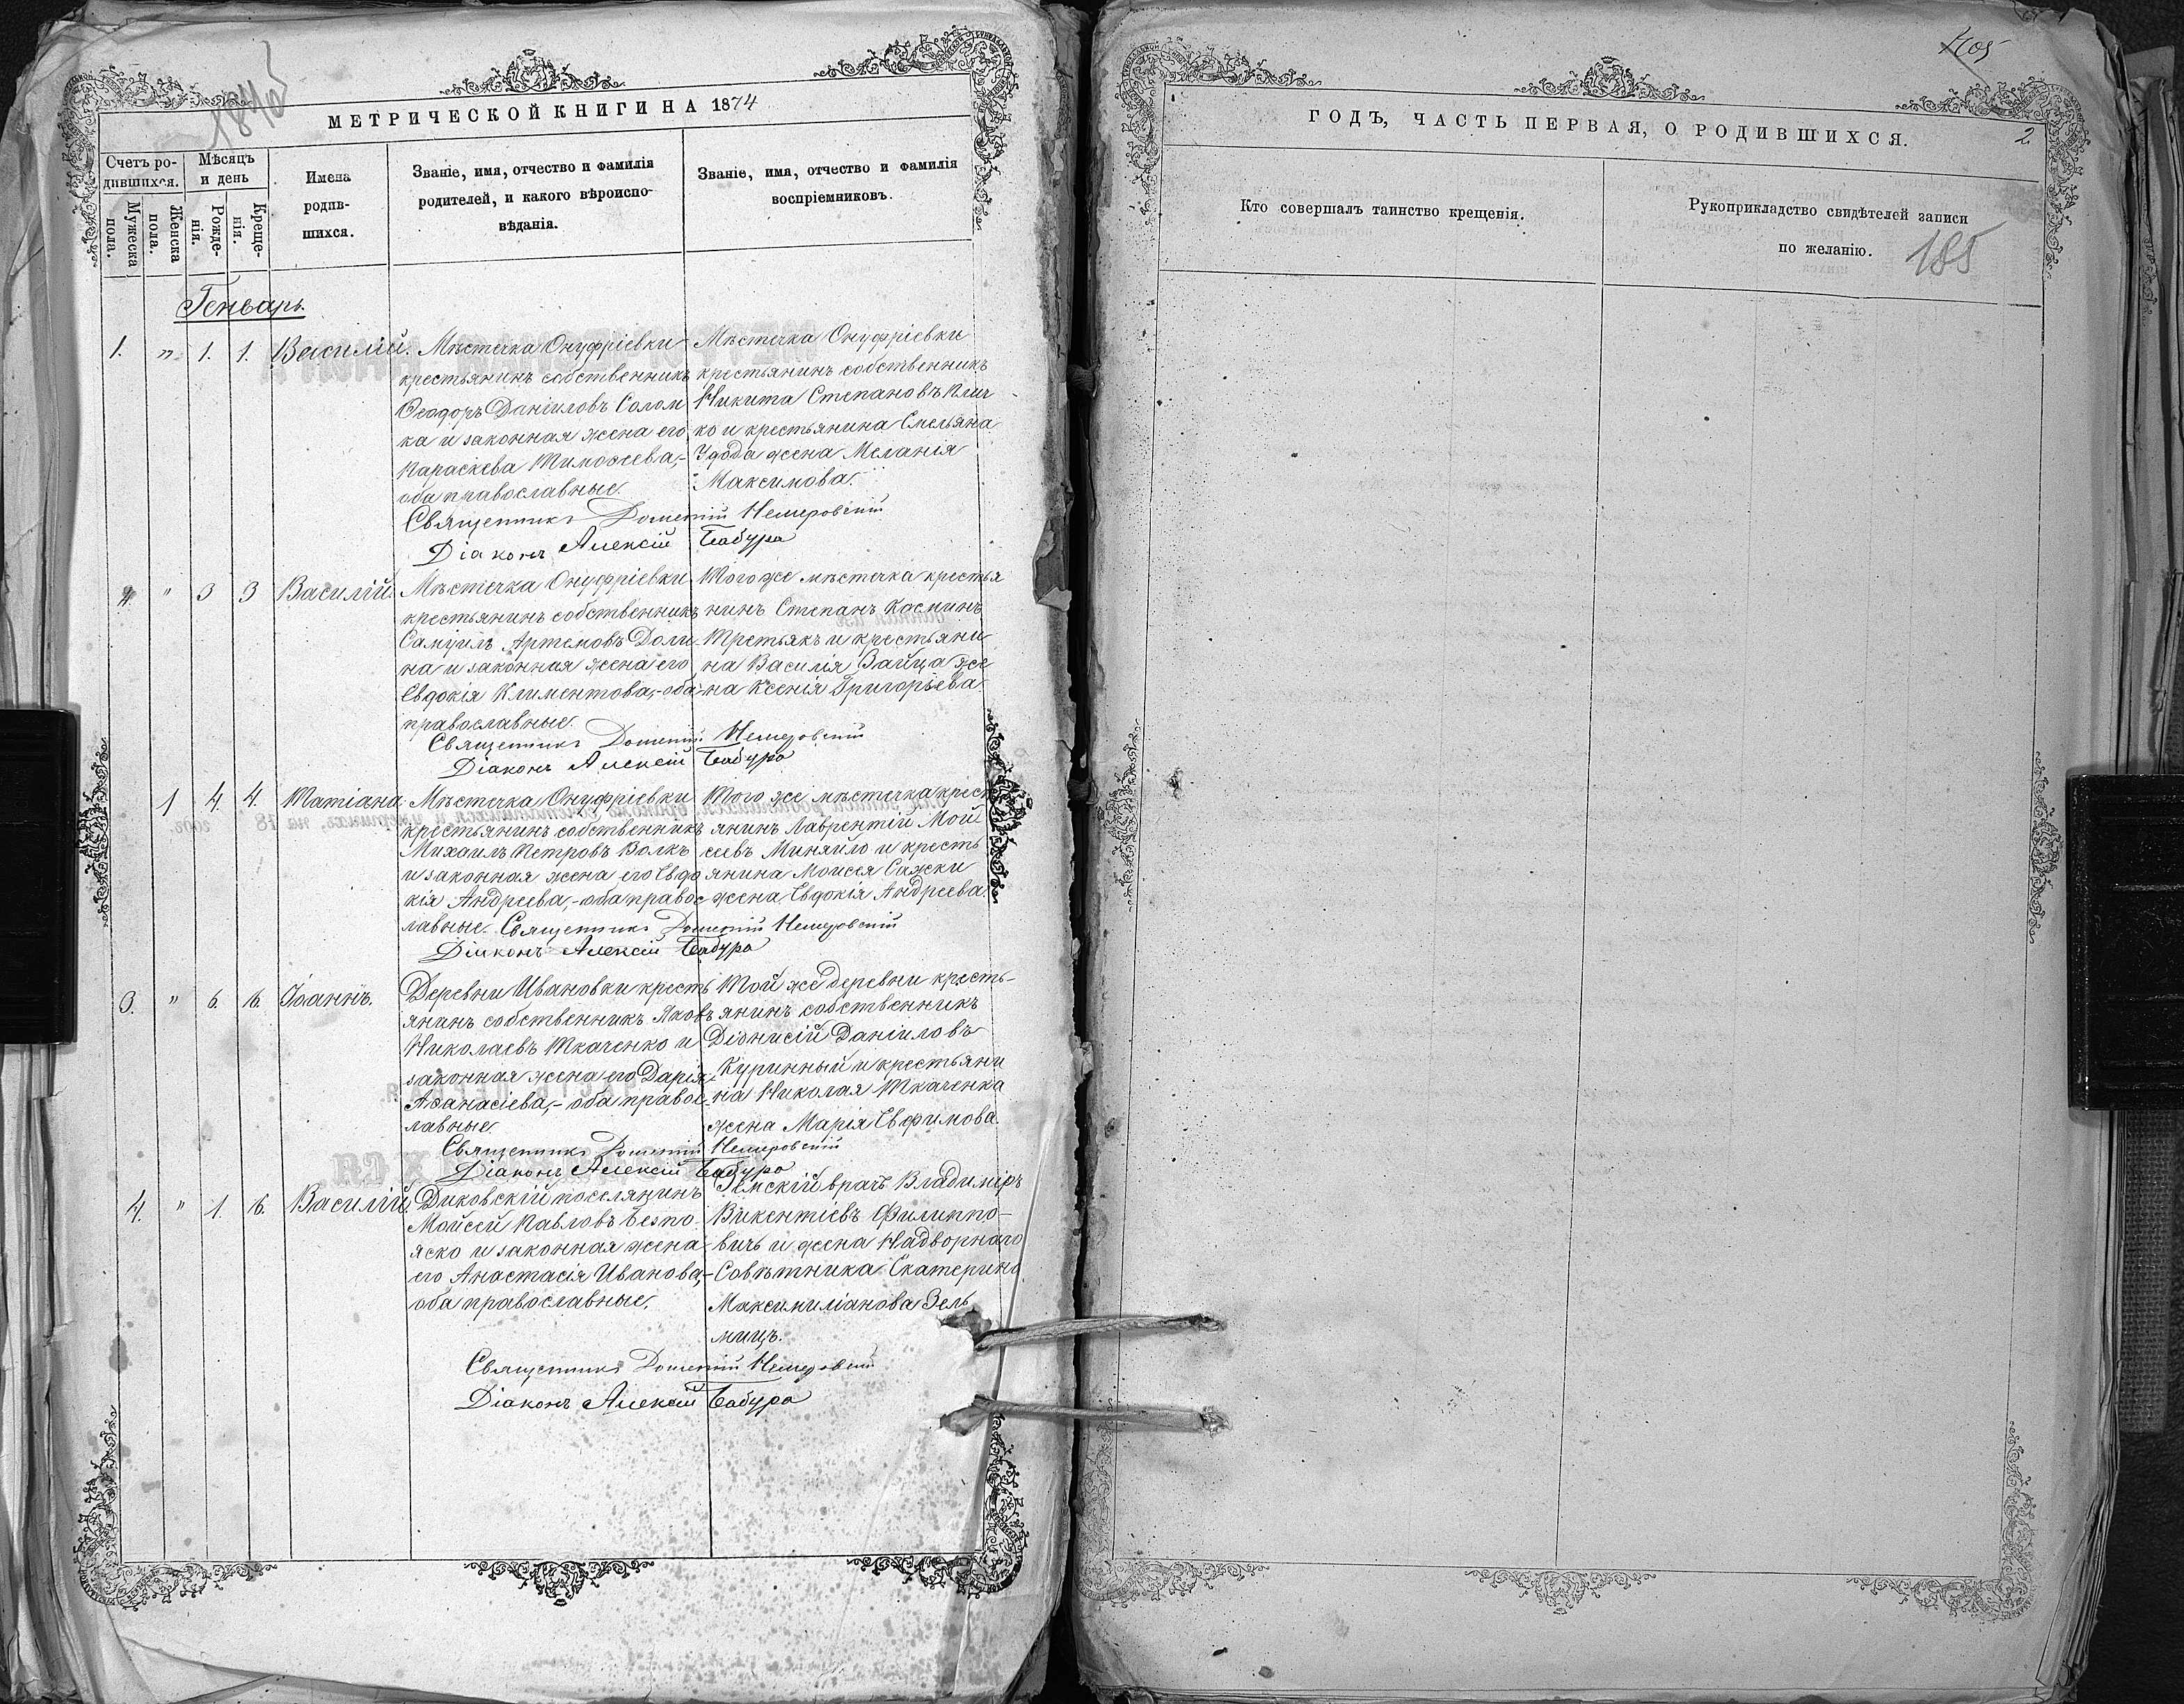 МЕТРИЧЕСКОЙ КНИГИ НА 1874
Счетъ ро-
дившихся.
Мужеска
пола.
Женска
пола.
Мѣсяцъ
и день
Рожде-
нія.
Креще-
нія.
Имена
родив-
шихся.
Званіе, имя, отчество и фамилія
родителей, и какого вѣроиспо-
вѣданія.
Званіе, имя, отчество и фамилія
воспріемниковъ.
Генварь
1. " 1. 1. Василій.
Мѣстечка Онуфріевки
крестьянинъ собственникъ
Ѳеодоръ Даніиловъ Солом
ка и законная жена его
Параскева Тимоѳеева,-
оба православные.
Мѣстечка Онуфріевки
крестьянинъ собственникъ
Никита Степановъ Клич
ко и крестьянина Емельяна
Удода жена Меланія
Максимова.
Священникъ Дометій Немеровскій
Діаконъ Алексій Бабура
2. " 3 3 Василій.
Мѣстечка Онуфріевки
крестьянинъ собственникъ
Самуилъ Артемовъ Доли
на и законная жена его
Евдокія Климентова,- оба
православные.
Того же мѣстечка крестья
нинъ Степанъ Косминъ
Третьякъ и крестьяни
на Василія Зайца же
на Ксенія Григорьева
Священникъ Дометій Немеровскій
Діаконъ Алексій Бабура
1 4. 4. Татіана.
Мѣстечка Онуфріевки
крестьянинъ собственникъ
Михаилъ Петровъ Волкъ
и законная жена его Евдо
кія Андреева,- оба правос
лавные.
Того же мѣстечка крест
янинъ Лаврентій Мой
сеевъ Миняйло и кресть
янина Моисея Сажки
жена Евдокія Андреева.
Священникъ Дометій Немеровскій
Діаконъ Алексій Бабура
3. " 6. 6. Іоаннъ.
Деревни Ивановки кресть
янинъ собственникъ Яковъ
Николаевъ Ткаченко и
законная жена его Дарія
Аѳанасіева,- оба правос
лавные.
Той же деревни кресть-
янинъ собственникъ
Діонисій Даніиловъ
Куринный и крестьяни
на Николая Ткаченка
жена Марія Евфимова.
Священникъ Дометій Немеровскій
Діаконъ Алексій Бабура
4. " 1. 6. Василій.
Диковскій поселянинъ
Мойсей Павловъ Безпо
яско и законная жена
его Анастасія Иванова,-
оба православные.
Земскій врачъ Владиміръ
Викентіевъ Филиппо-
вичъ и жена Надворнаго
Совѣтника Екатерина
Максимиліанова Зель
мицъ.
Священникъ Дометій Немеровскій
Діаконъ Алексій Бабура
405
ГОДЪ, ЧАСТЬ ПЕРВАЯ, О РОДИВШИХСЯ.
2
Кто совершалъ таинство крещенія.
Рукоприкладство свидѣтелей записи
по желанію.
185